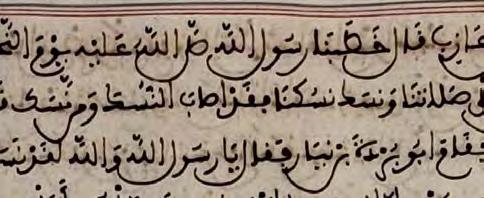 عازب قال خطبنا رسول الله صلى الله عليه يوم
صلاتنا ونسك نسكنا فقد اصاب النسك ومن نسك
فقام ابو بردة بن نيار فقال يا رسول الله والله لقد